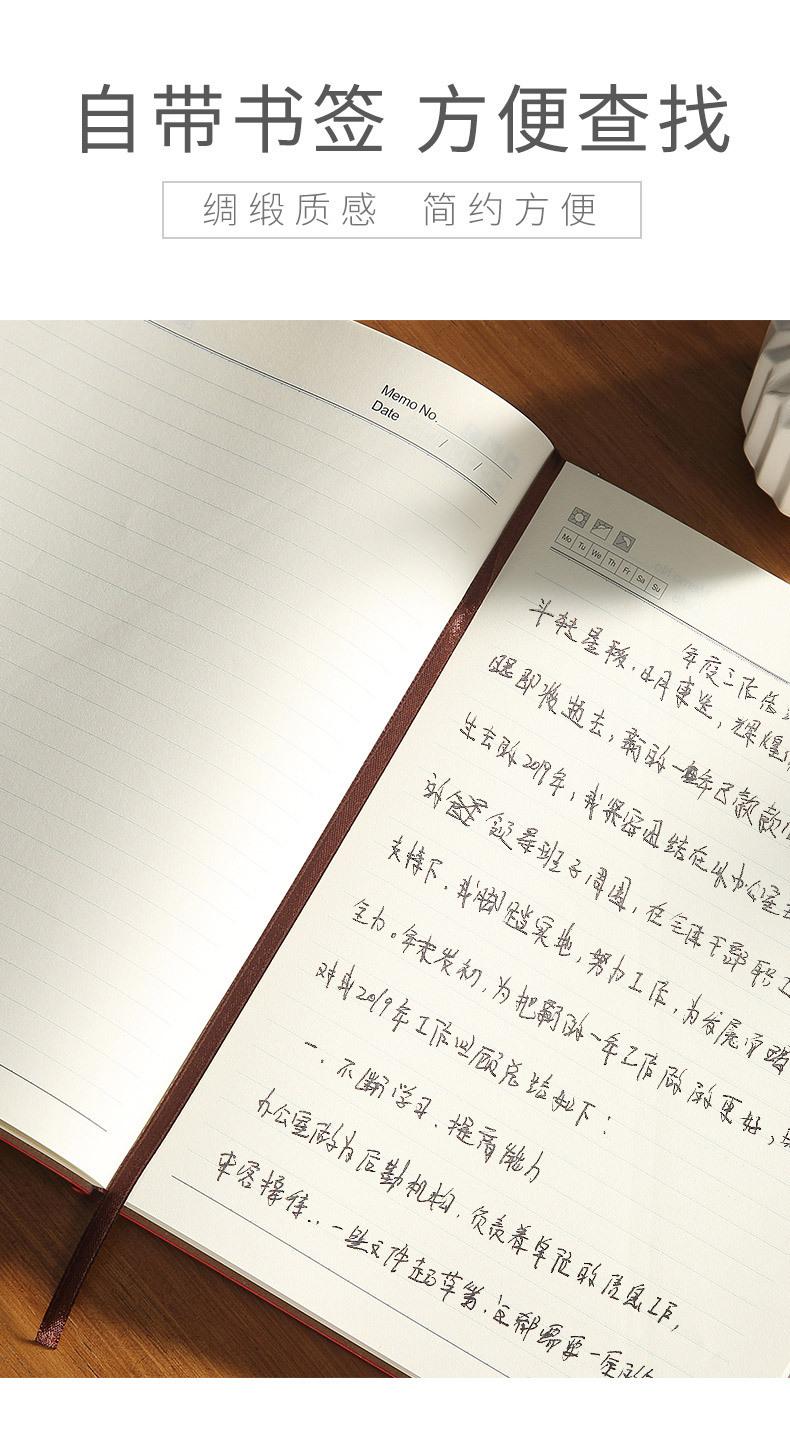 自带书签 方便查找
绸缎质感 简约方便
Memo No.
Date / /
Mo Tu We Th Fr Sa Su
年度工作总
斗转星移,日月東送,辉煌
眼即将逝去,新的一年已款款
的2019年,我紧密团结在从办公室
的 领导班子周围,在全体干部职工
支持下,我脚踏实地,努力工作,为发展
全力。年末岁初,为把新的一年工作做的更好,
对我2019年工作回顾总结如下:
一、不断学习、提高能力
办公室做为后勤机构,负责着单位的信息工作,
一些文件起草等,这都需要一定的